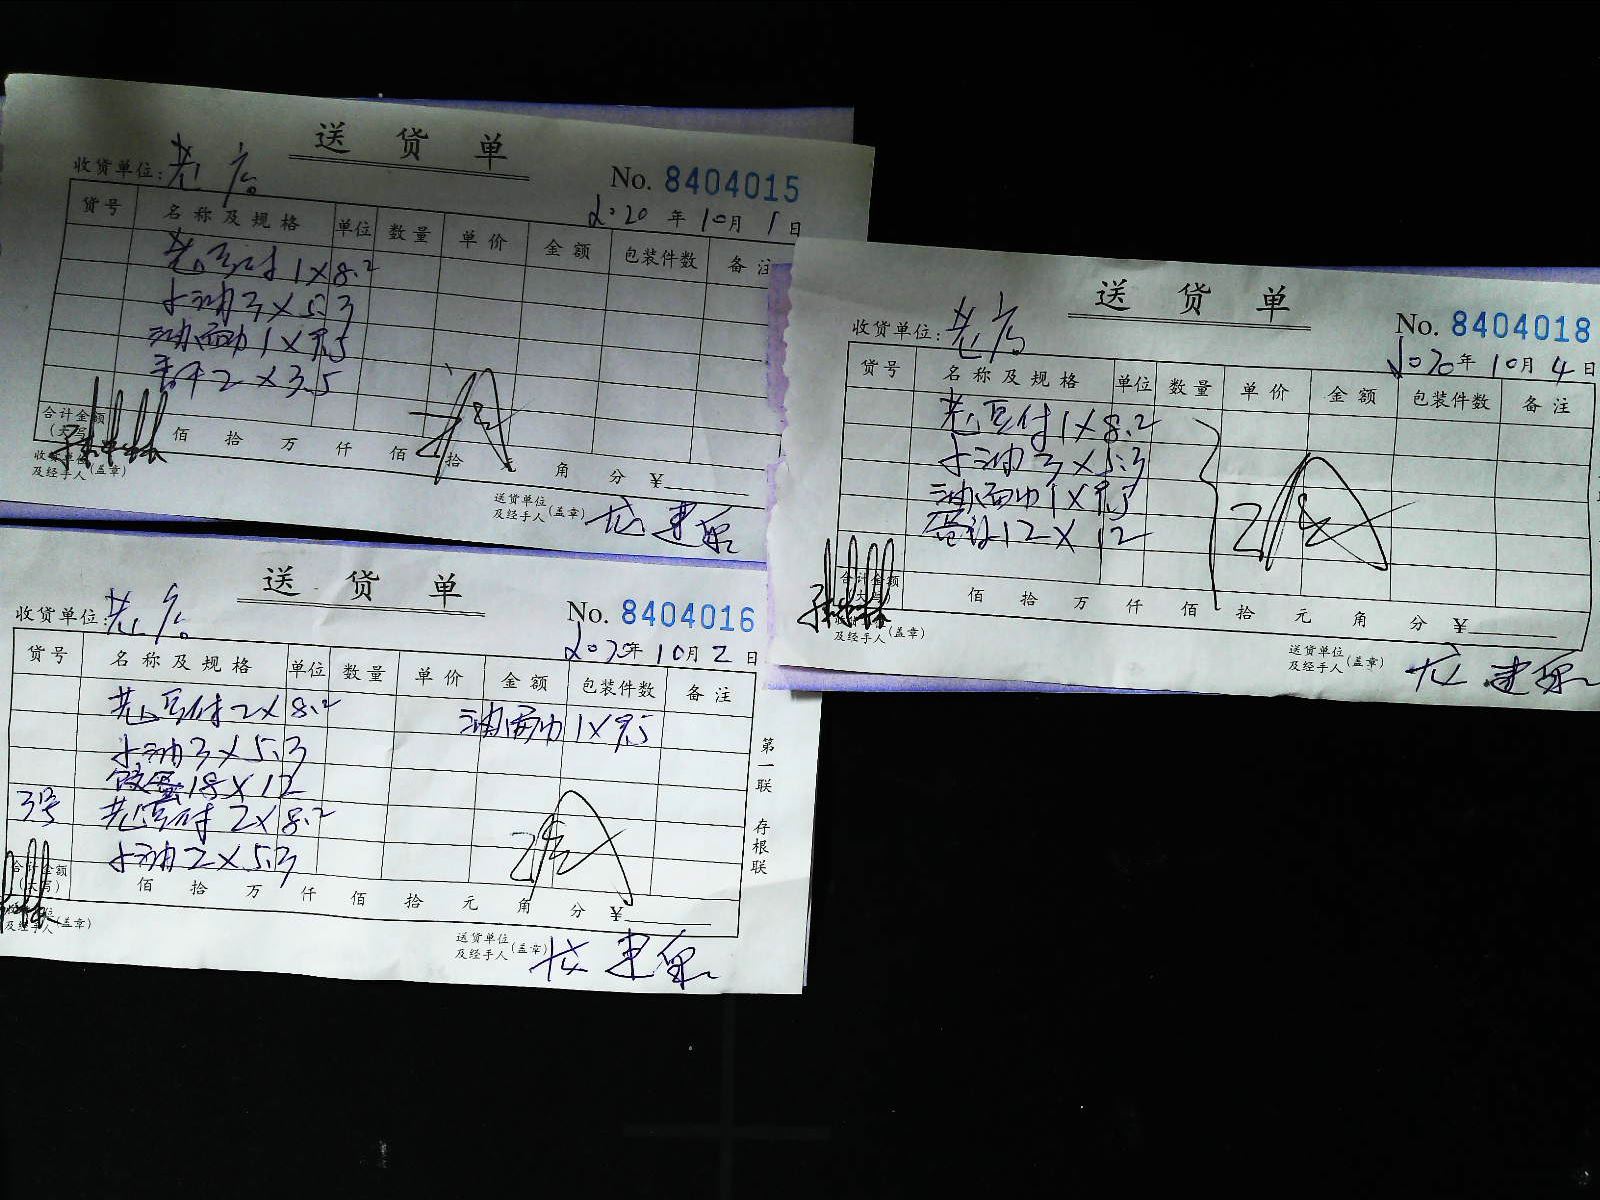 送货单
收货单位:老店
No. 8404015
2020年10月1日
货号 名称及规格 单位 数量 单价 金额 包装件数 备注
老豆付 1×8.2
卜油 3×5.3
油面巾 1×9.5
2×3.5
合计金额(大写) 佰 拾 万 仟 佰 拾 元 角 分 ¥
收货单位及经手人(盖章)
送货单位及经手人(盖章)
送货单
收货单位:老店
No. 8404018
2020年10月4日
货号 名称及规格 单位 数量 单价 金额 包装件数 备注
老豆付 1×8.2
卜油 3×5.3
油面巾 1×9.5
12×12
合计金额(大写) 佰 拾 万 仟 佰 拾 元 角 分 ¥
及经手人(盖章)
送货单位及经手人(盖章)
送货单
收货单位:老店
No. 8404016
2020年10月2日
货号 名称及规格 单位 数量 单价 金额 包装件数 备注
老豆付 2×8.2
油面巾 1×9.5
卜油 3×5.3
18×12
3号 老豆付 2×8.2
卜油 2×5.3
合计金额(大写) 佰 拾 万 仟 佰 拾 元 角 分 ¥
及经手人(盖章)
送货单位及经手人(盖章)
第一联 存根联